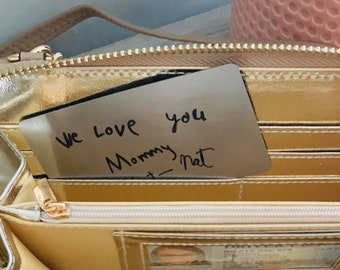 We Love you
Mommy
nat